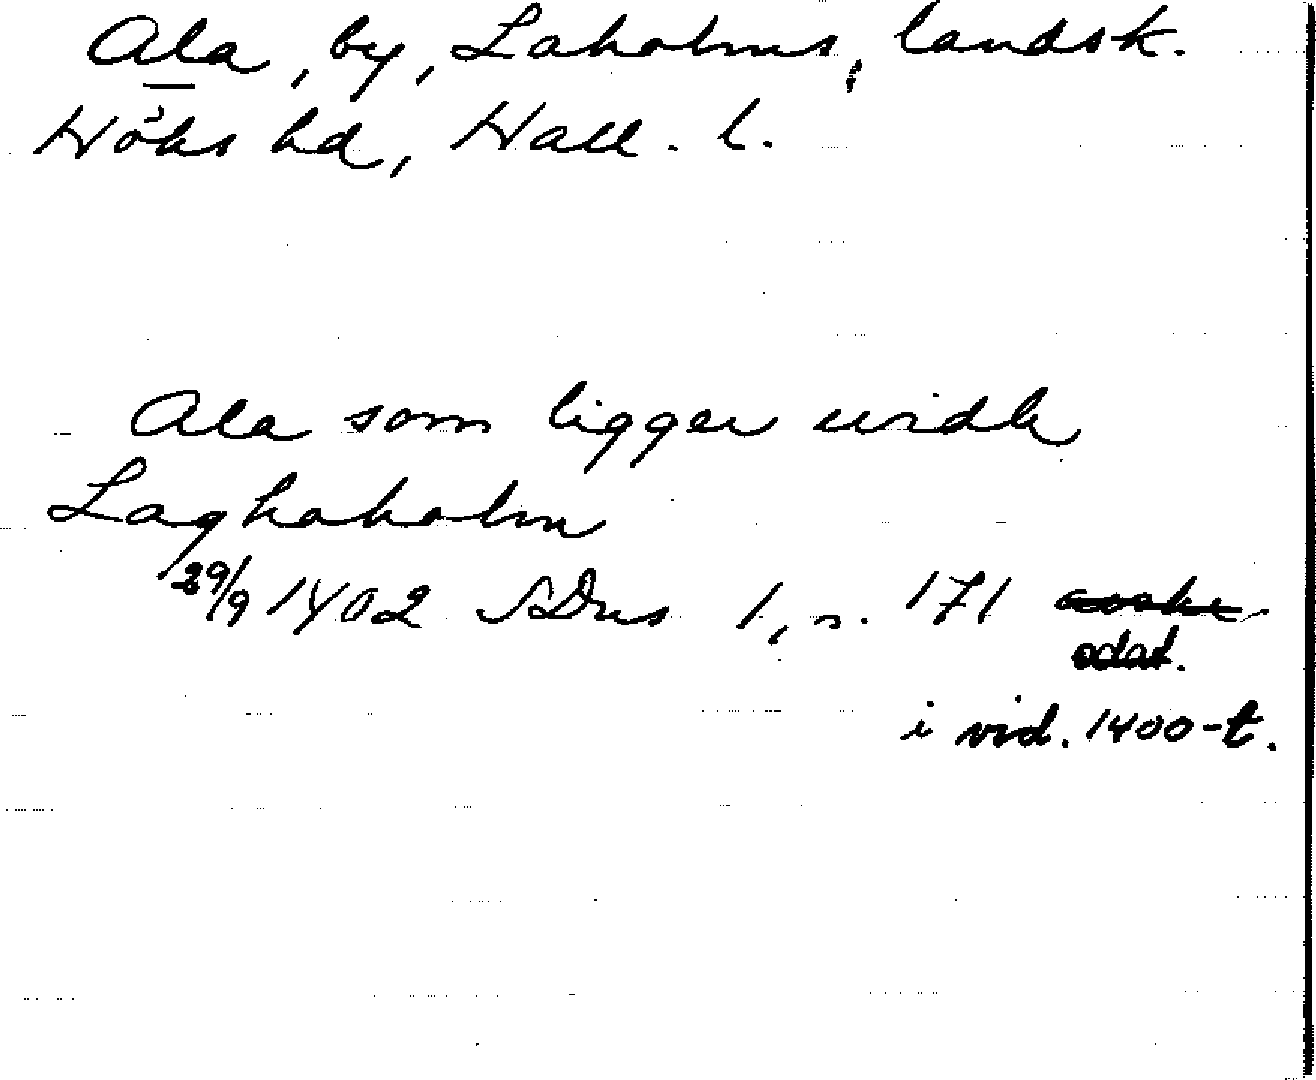 Ala, by, Laholms, landsk.
Höks hd, Hall. l.
Ala som ligger widh
Laghaholm
29/9 1402 SDns 1, s. 171
odat.
i vid. 1400-t.